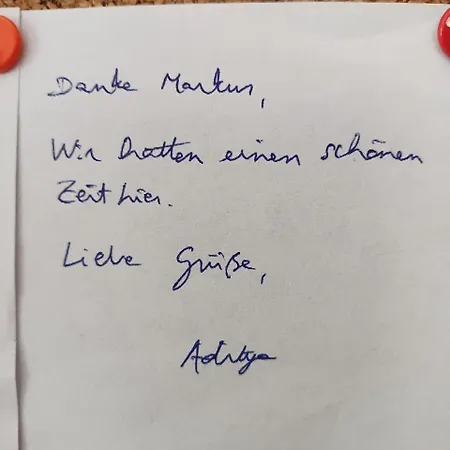 Danke Markus,
Wir hatten einen schönen
Zeit hier.
Liebe Grüße,
Aditya